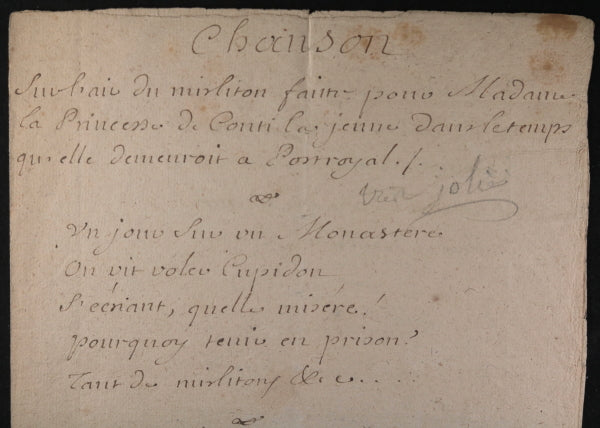 Chanson
Sur l'air du mirliton faitte pour Madame
la Princesse de Conti la jeune dans le temps
qu'elle demeuroit a Portroyal ./.
joli
Un jour sur un Monastere
On vit voler Cupidon
S'ecriant, quelle misére!
pourquoy tenir en prison?
Tant de mirlitons &c....